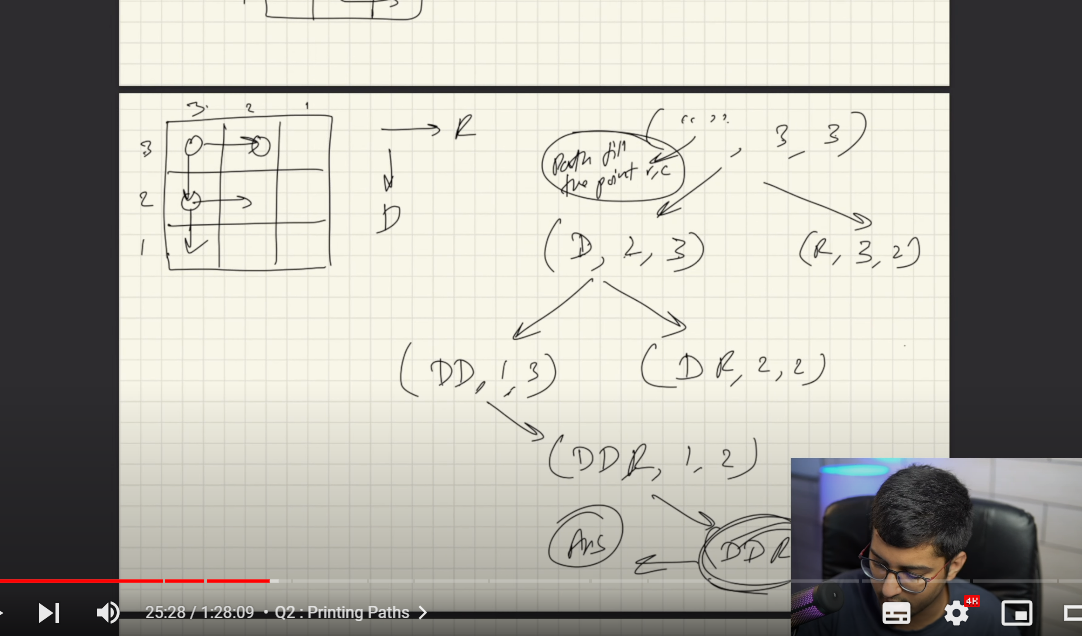 3 2 1
3
2
1
→ R
D
Path till
the point r,c
( " " , 3, 3)
(D, 2, 3)
(R, 3, 2)
(DD, 1, 3)
(DR, 2, 2)
(DDR, 1, 2)
Ans
(DDR
25:28 / 1:28:09 • Q2 : Printing Paths
4K